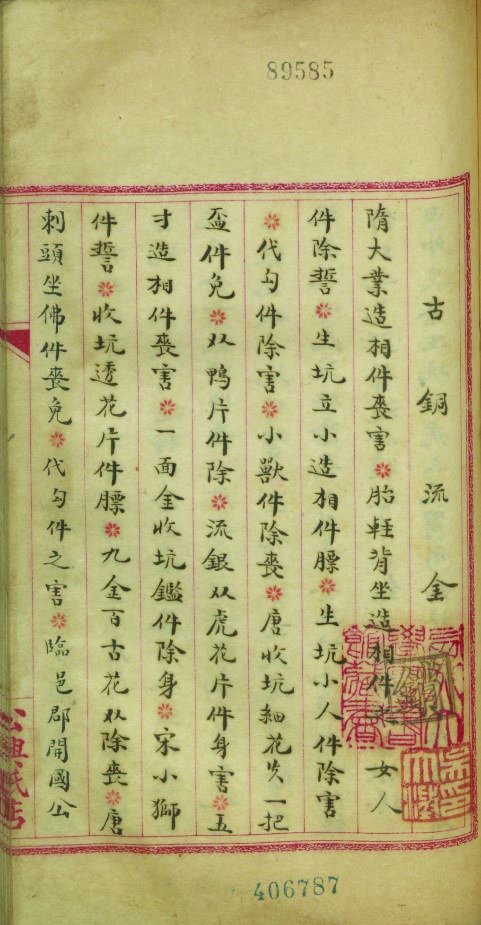 89585
古銅流金
隋大業造相件喪害 胎輕背坐造相件 女人
件除誓 生坑立小造相件膘 生坑小人件除害
代勾件除害 小獸件除喪 唐收坑細花 一把
盃件免 双鴨片件除 流銀双虎花片件身害 五
寸造相件喪害 一面金收坑鑑件除身 宋小獅
件誓 收坑透花片件膘 九金百古花双除喪 唐
刺頭坐佛件喪免 代勾件之害 臨邑郡開國公
406787